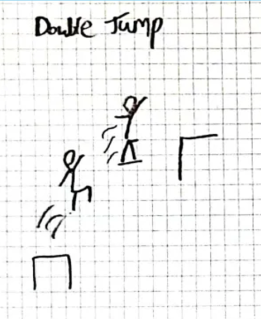 Double Jump